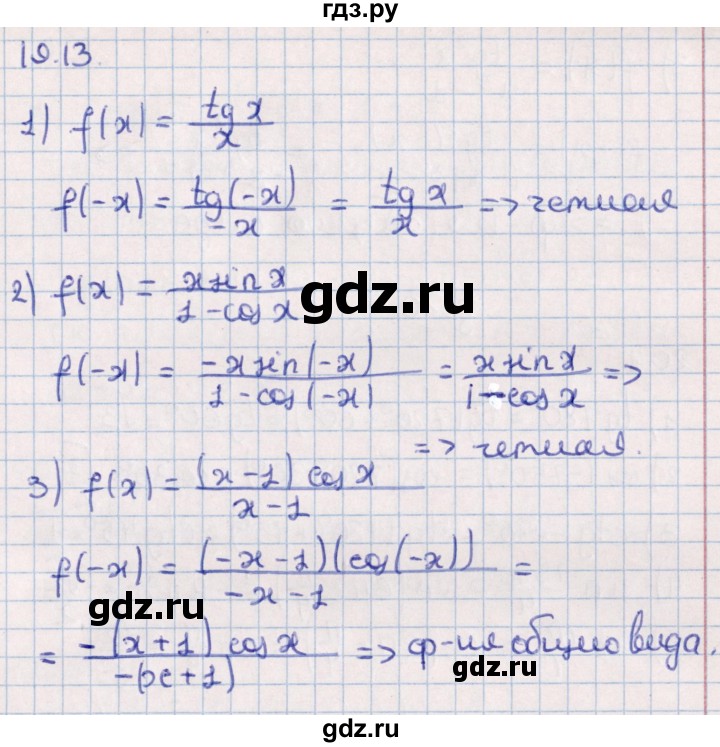 гдз.ру
19.13.
1) f(x) = tg x / x
f(-x) = tg(-x) / -x = tg x / x => четная
2) f(x) = x sin x / 1 - cos x
gdz.ru
f(-x) = -x sin(-x) / 1 - cos(-x) = x sin x / 1 - cos x =>
=> четная.
3) f(x) = (x-1) cos x / x-1
f(-x) = (-x-1)(cos(-x)) / -x-1 =
gdz.ru
= -(x+1) cos x / -(x+1) => ф-ия общего вида.
gdz.ru